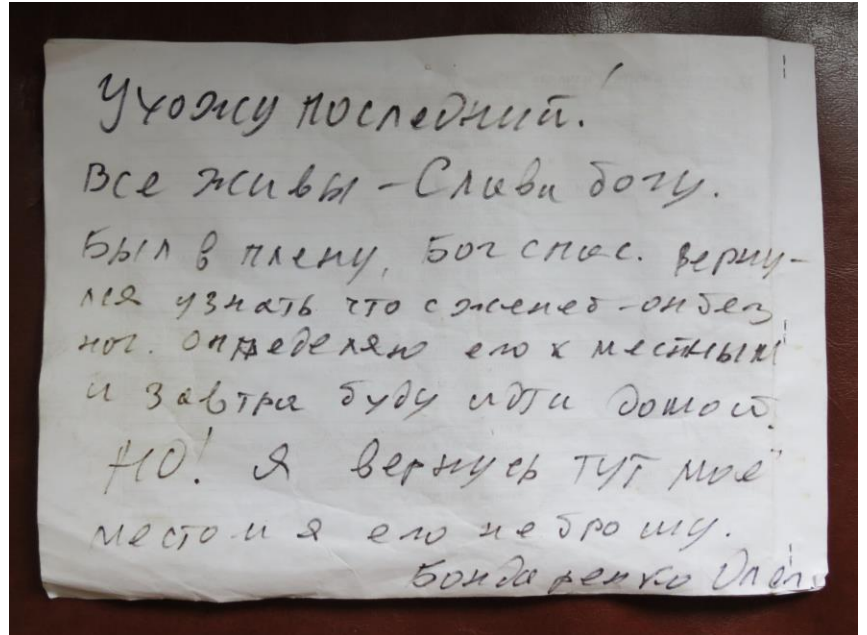 Ухожу последний!
Все живы – Слава богу.
Был в плену, Бог спас. Верну-
лся узнать что с женей – он без
ног. Определяю его к местным
и завтра буду идти домой.
НО! Я вернусь тут моё
место и я его не брошу.
Бондаренко Олег.